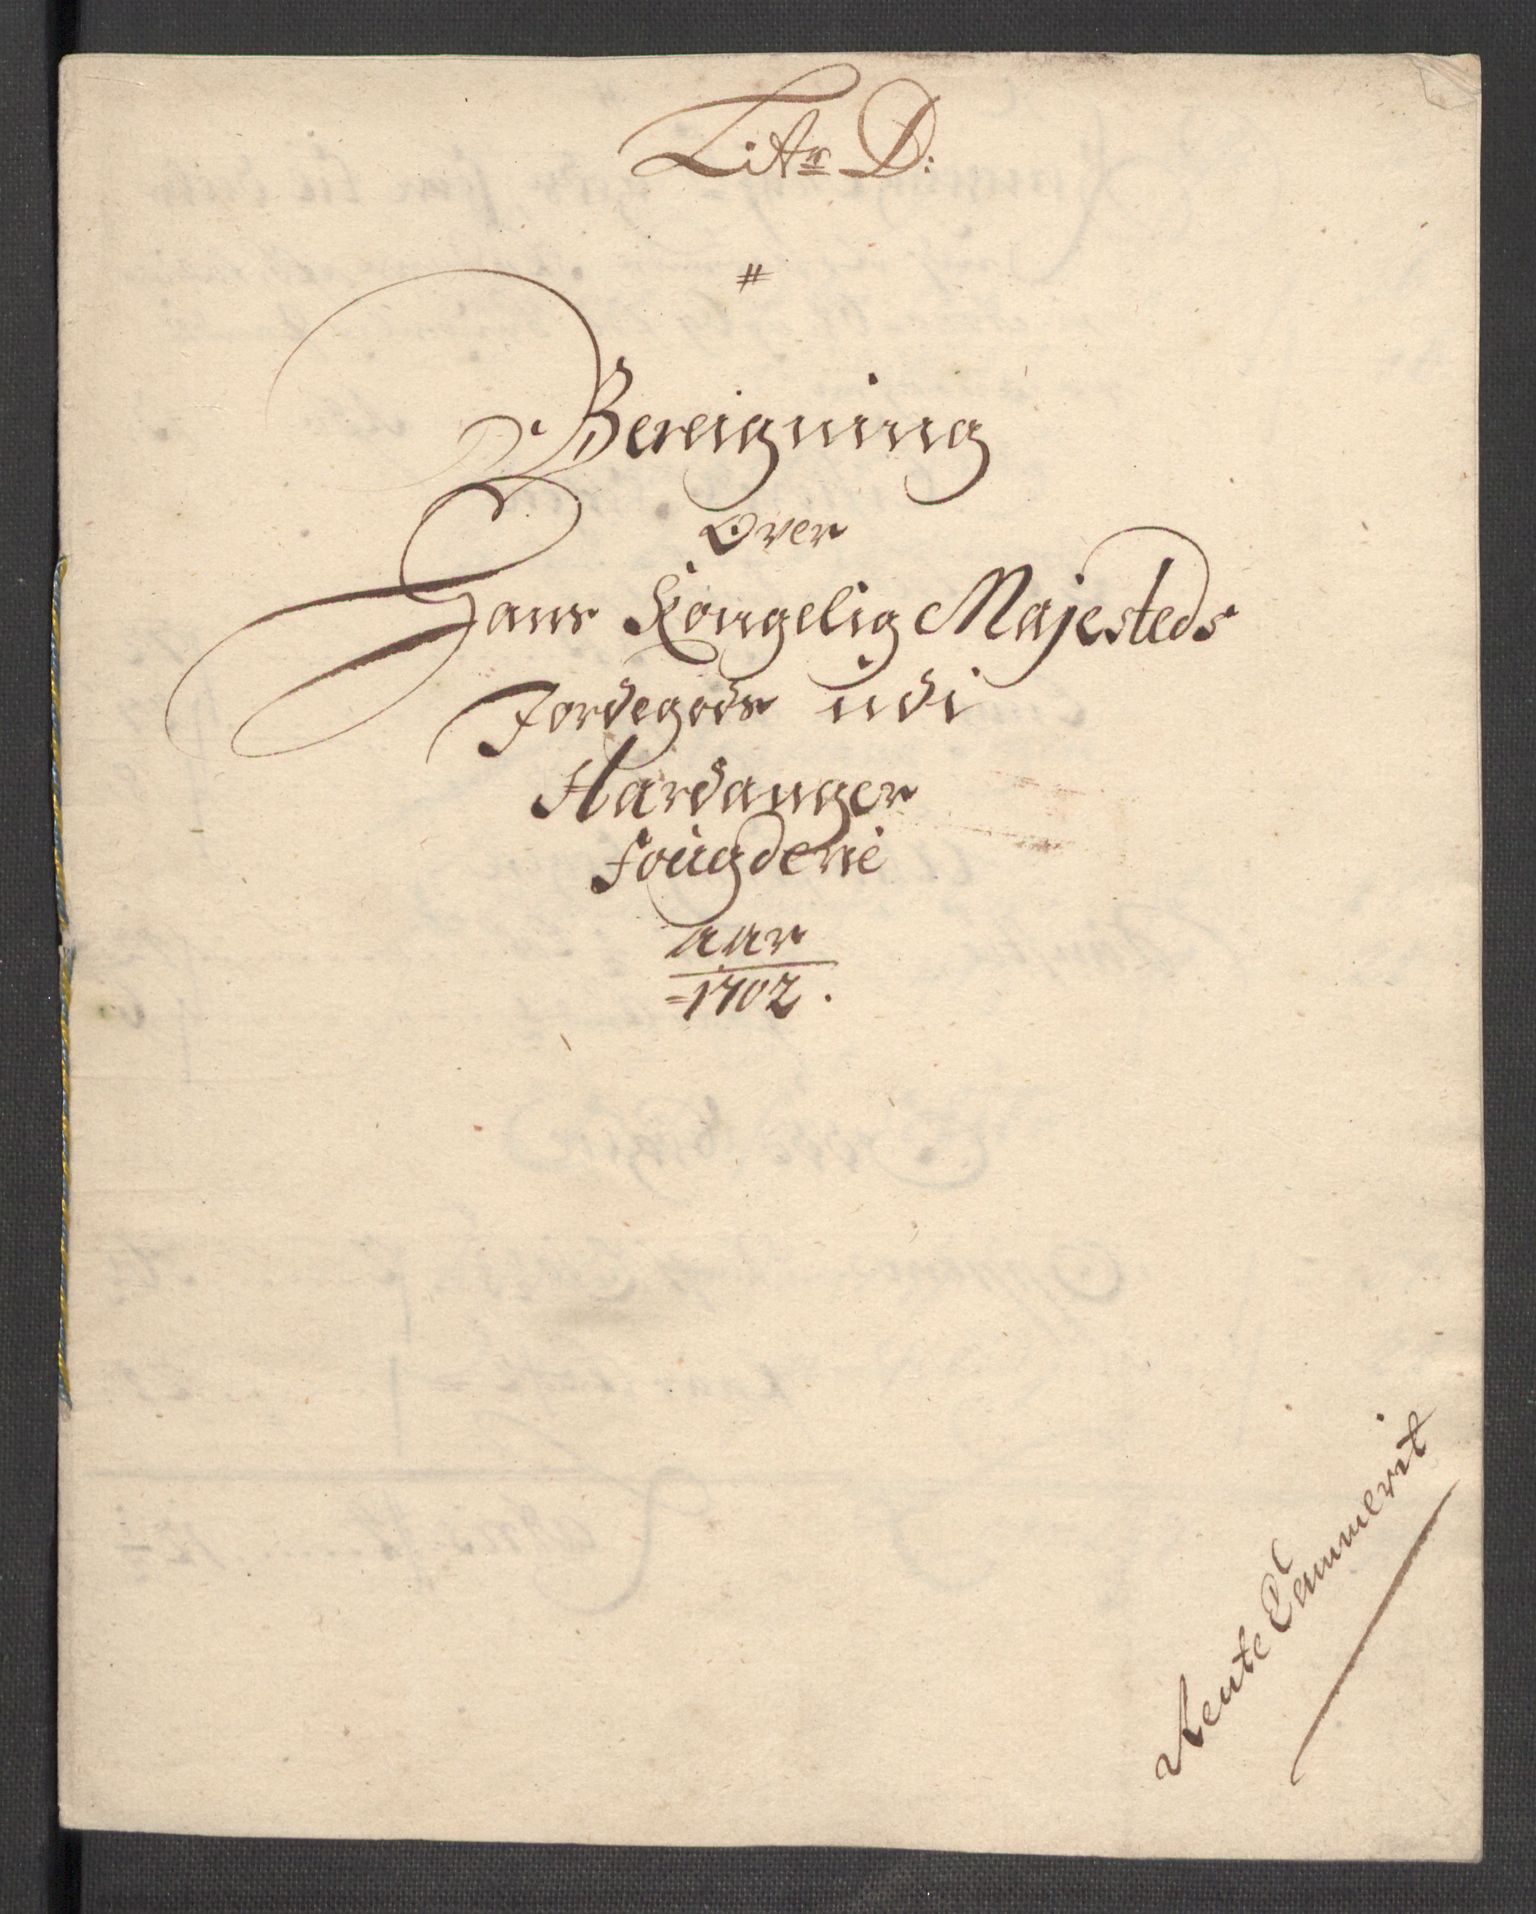 Litr D:
#
Bereigning
Over
Hans Kongelig Majesteds
Jordegods udi
Hardanger
fougderie
aar
1702.
Rente Cammerit